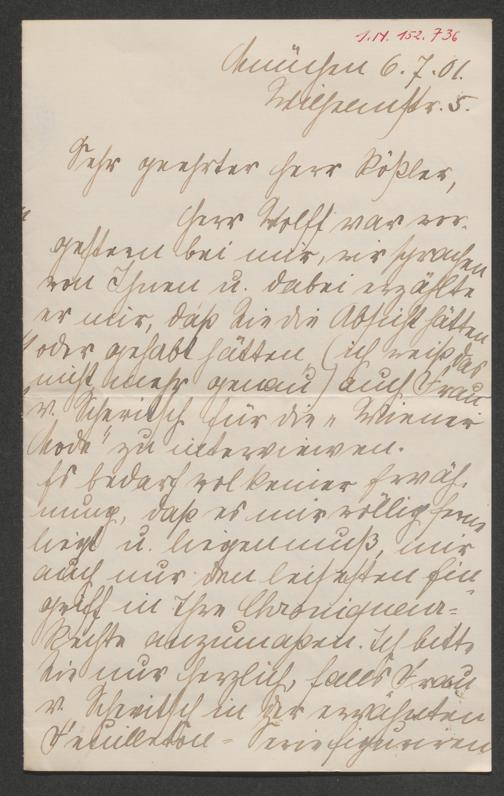 J.N. 152.736
München 6.7.01.
Wilhelmstr. 5.
Sehr geehrter Herr Rößler,
Herr Wolff war vor-
gestern bei mir, wir sprachen
von Ihnen u. dabei erzählte
er mir, daß Sie die Absicht hätten
oder gehabt hätten (ich weiß das
nicht mehr genau) auch Frau
v. für die "Wiener
Mode" zu interviewen.
Es bedarf wol keiner Erwäh-
nung, daß es mir völlig ferne
liegt u. liegen muß, mir
auch nur den leisesten Ein-
griff in Ihre Chroniqueur-
Rechte anzumaßen. Ich bitte
Sie nur herzlich, falls Frau
v. in der erwähnten
Feuilleton-Serie figuriren